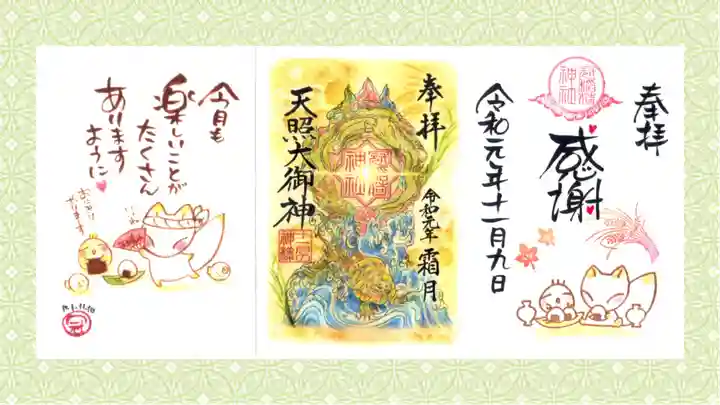 奉拝
感謝
神社
令和元年十一月九日
奉拝
令和元年 霜月
神社
天照大御神
今月も
楽しいことが
たくさん
あります
ように